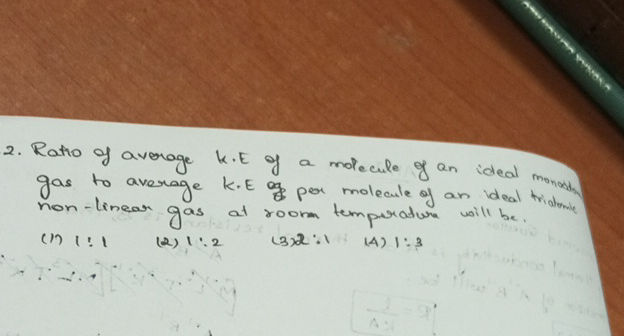 2. Ratio of average K.E of a molecule of an ideal monoato
gas to average K.E of per molecule of an ideal triatomic
non-linear gas at room temperature will be.
(1) 1:1 (2) 1:2 (3) 2:1 (4) 1:3